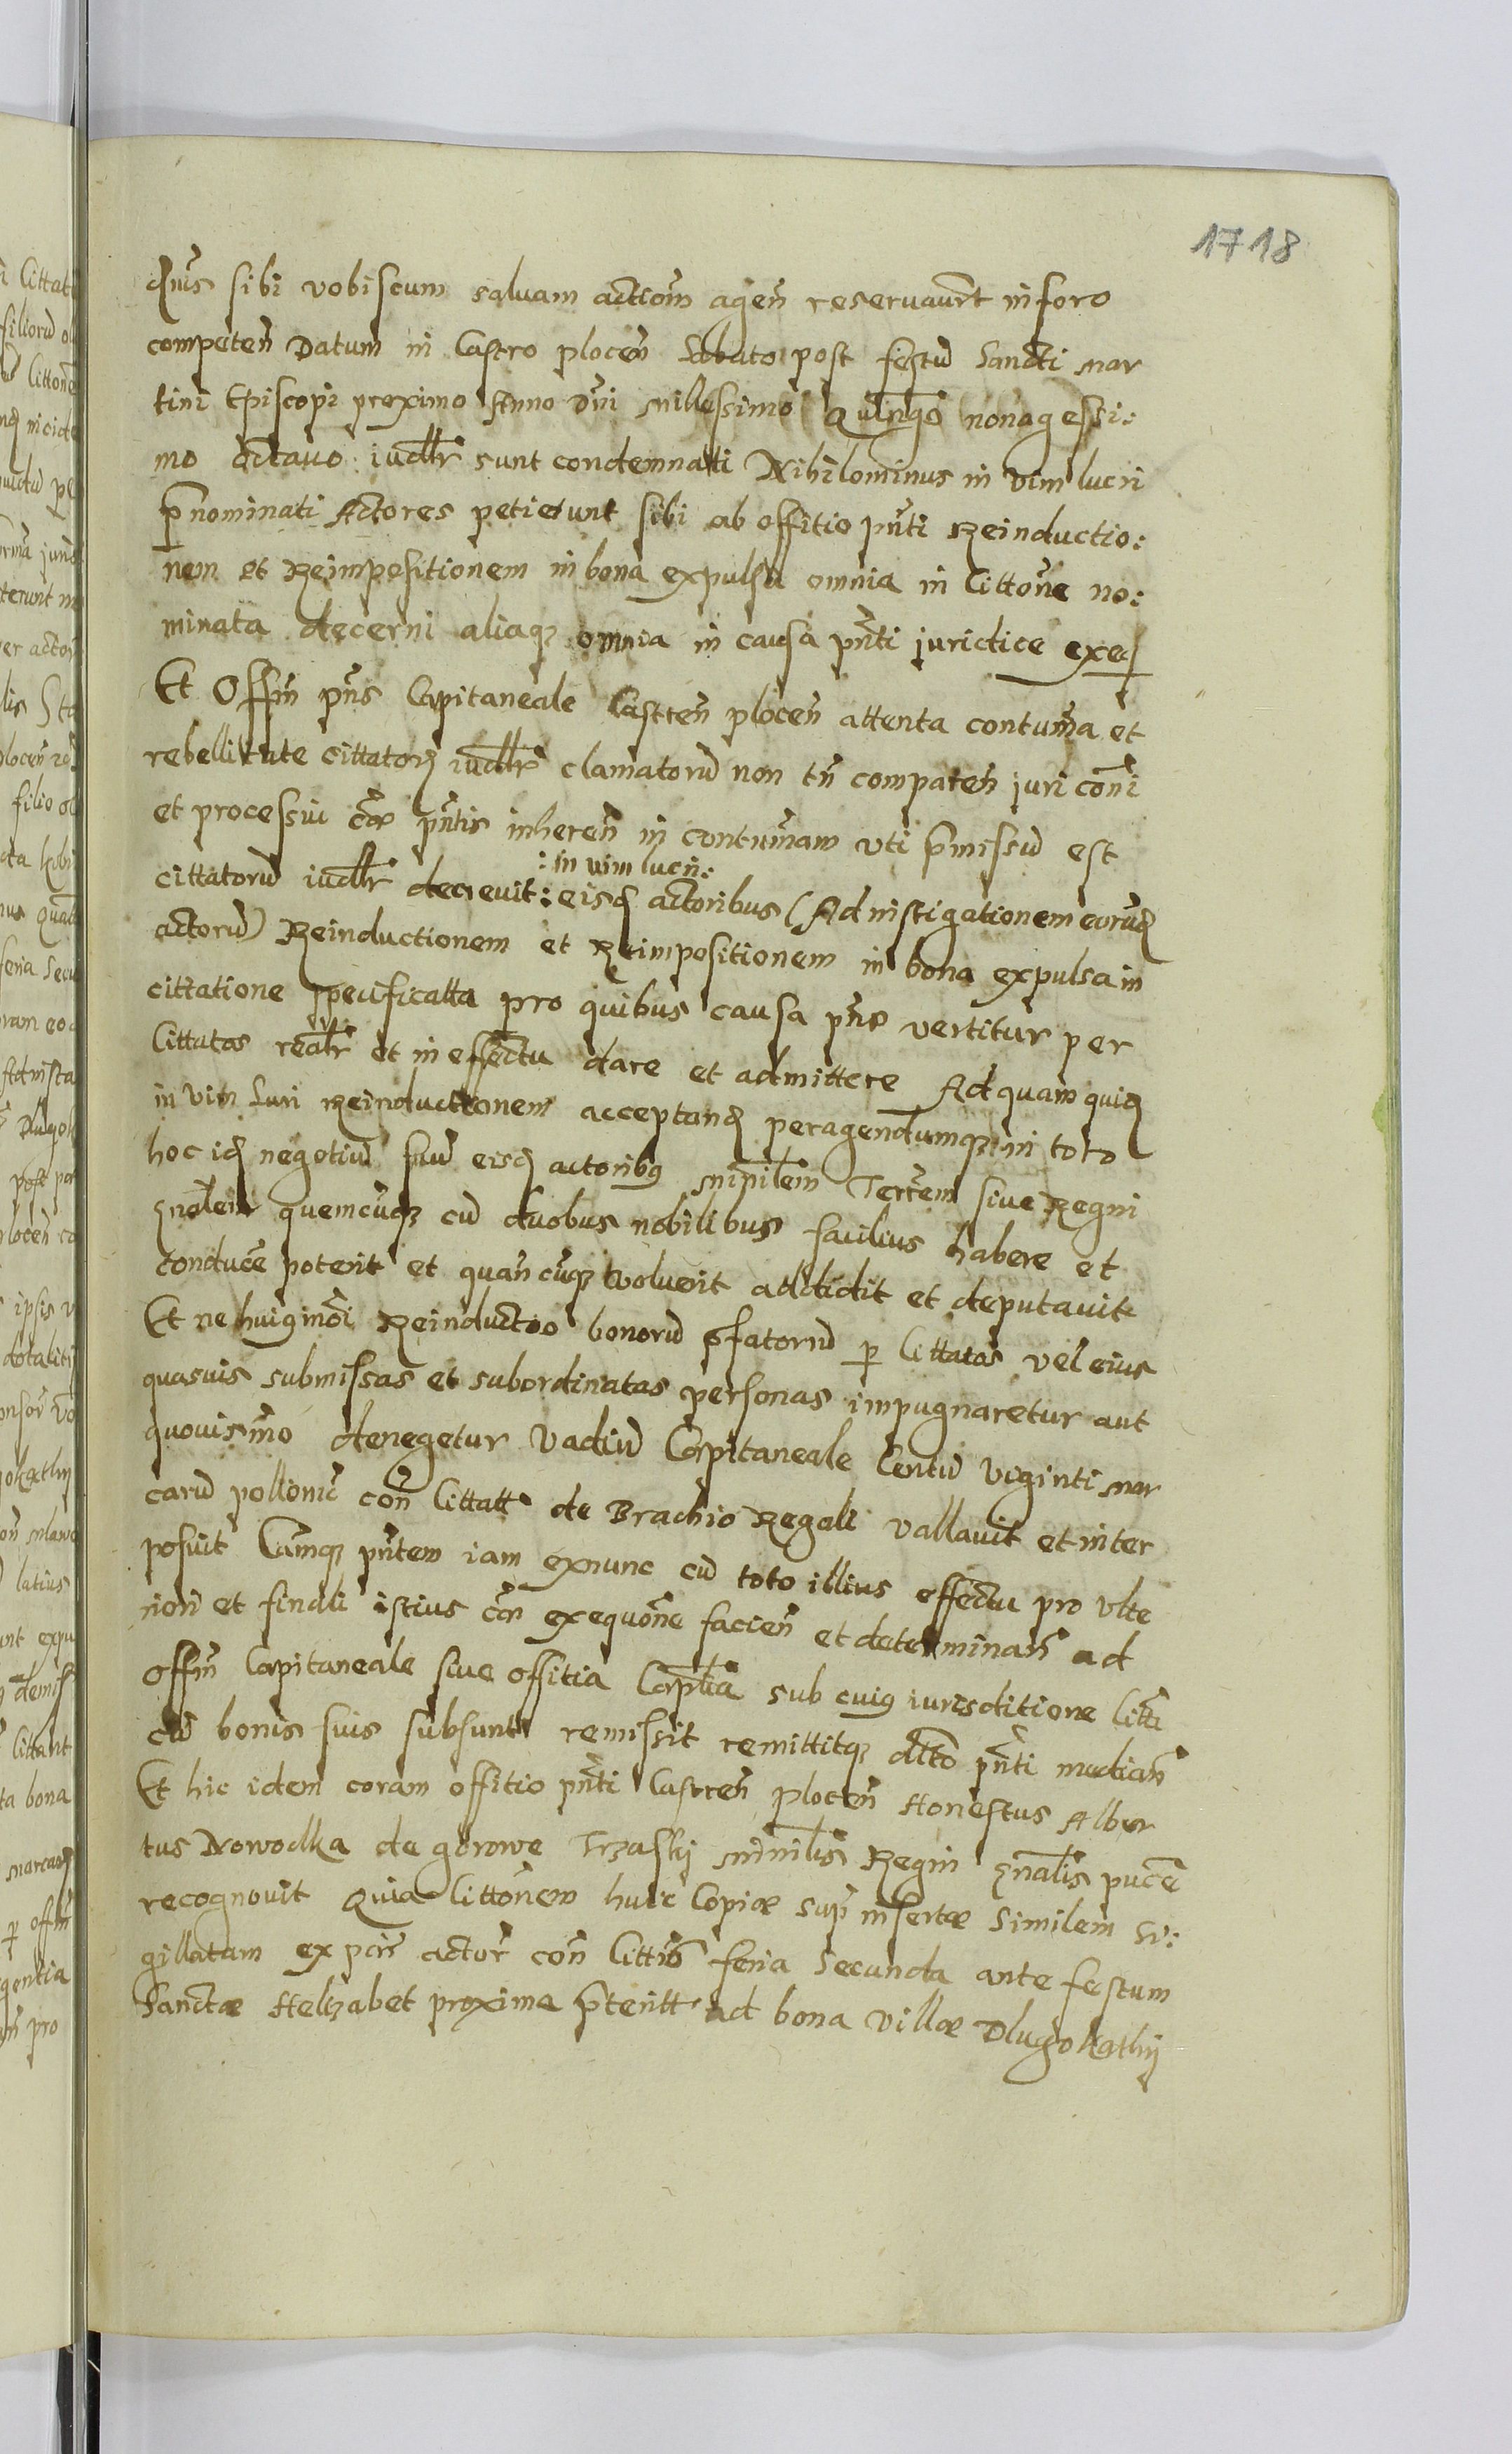 1718
quis sibi vobiscum salvam actiom̃ agen̄ reservaur̃t in foro
competen̄ Datum in Castro plocen̄ Sabato post festū Sancti Mar
tini Episcopi proximo Anno Dn̄i Millessimo Quinqs̄ nonagessi:
mo octavo iudlr̄ sunt condemnatti Nihilominus in vim lucri
p̄nominati Actores petierunt sibi ab offitio pn̄ti Reinductio:
nem et Reimpositionem in bona expulsa omnia in Cittone no:
minata decerni aliaqȝ omnia in causa pn̄ti juridice exeq
Et Offm̄ pn̄s Capitaneale Castren̄ plocen̄ attenta contum̄a et
rebellitate cittatorȝ iudlr̄ clamatorū non tn̄ comparen̄ juri com̄i
et processui cāæ pn̄tis inheren̄ in contum̄am uti p̄missū est
:in vim lucri:
cittatorū iudlr̄ decrevit: eisdȝ actoribus (Ad instigationem eorudȝ
actorū) Reinductionem et Reimpositionem in bona expulsa in
cittatione specificatta pro quibus causa pn̄s vertitur per
Cittatos realr̄ et in effectu dare et admittere Ad quam quidȝ
in vim Luri Reinductionem acceptandȝ peragendumqȝ in toto
hoc idȝ negotiū suū eisdȝ actoribus ministlem Terrem̄ sive Regni
gn̄alem quemcūqȝ cū duobus nobilibus facilius habere et
conducē poterit et quan̄cūqȝ voluerit addidit et deputavit
Et ne huiusmōi Reinductio bonorū p̄fatorū p̄ Cittatos vel eius
quasvis submissas et subordinatas personas impugnaretur aut
quovismō denegetur Vadiū Capitaneale Centū viginti mar
carū pollonic̄ con̄ Cittatt de Brachio Regali vallavit et inter
posuit Cāmqȝ pn̄tem iam exnunc cū toto illius effectu pro Ulte
riori et finali istius cāæ exequōne facien̄ et determinan̄ ad
offm̄ Capitaneale sive offitia Cap̄lia sub cuius iurisditione Citti
cū bonis suis subsunt remissit remittitqȝ dcto pn̄ti median̄
Et hic idem coram offitio pn̄ti Castren̄ plocen̄ Honestus Alber
tus Nowodka de gorowe Trzaski minilis Regni gn̄alis pucē
recognovit Quia Cittonem huic Copiæ sup̄ insertæ Similem si:
gillatam ex pār actor̄ con̄ Cittis feria Secunda ante festum
Sanctæ Helzabet proxime p̄teritt ad bona villæ Dlugokathij